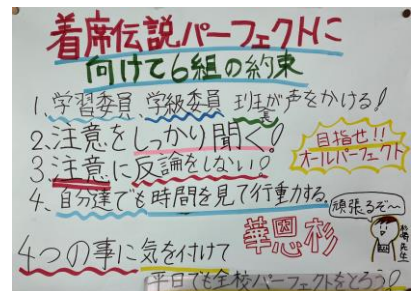 着席伝説パーフェクトに
向けて6組の約束
1. 学習委員 学級委員 班長が声をかける!
2. 注意をしっかり聞く!
3. 注意に反論をしない!
4. 自分達でも時間を見て行動する。
目指せ!!
オールパーフェクト
頑張るぞ〜
先生
4つの事に気を付けて
華恩杉
平日でも全校パーフェクトをとろう!